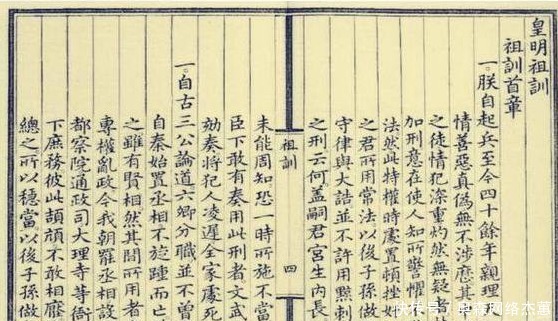 皇明祖訓
祖訓首章
一。朕自起兵至今四十餘年親理
情善惡真偽無不涉歷其
之徒情犯深重灼然無疑者
加刑意在使人知所警懼
法然此特權時處置頓挫奸
之君所用常法以後子孫做
守律與大誥並不許用黥刺
之刑云何蓋嗣君宮生內長
祖訓
四
未能周知恐一時所施不當
臣下敢有奏用此刑者文武
劾奏將犯人凌遲全家處死
一。自古三公論道六卿分職並不曾
自秦始置丞相不旋踵而亡
之雖有賢相然其間所用者
專權亂政今我朝罷丞相設
都察院通政司大理寺等衙
下庶務彼此頡頏不敢相壓
總之所以穩當以後子孫做
快传号/森网络杰童